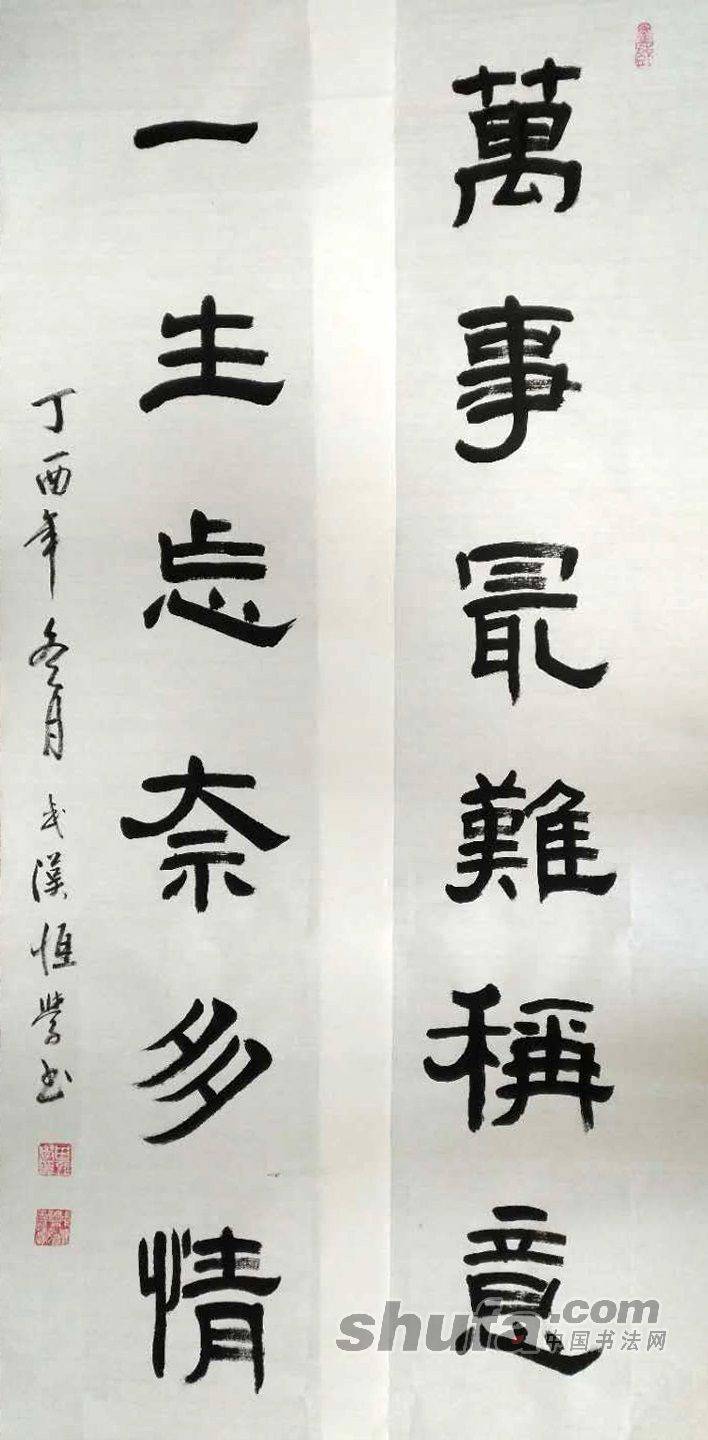 萬事最難稱意
一生忘奈多情
丁酉年冬月武漢书
shufa.com
中国书法网